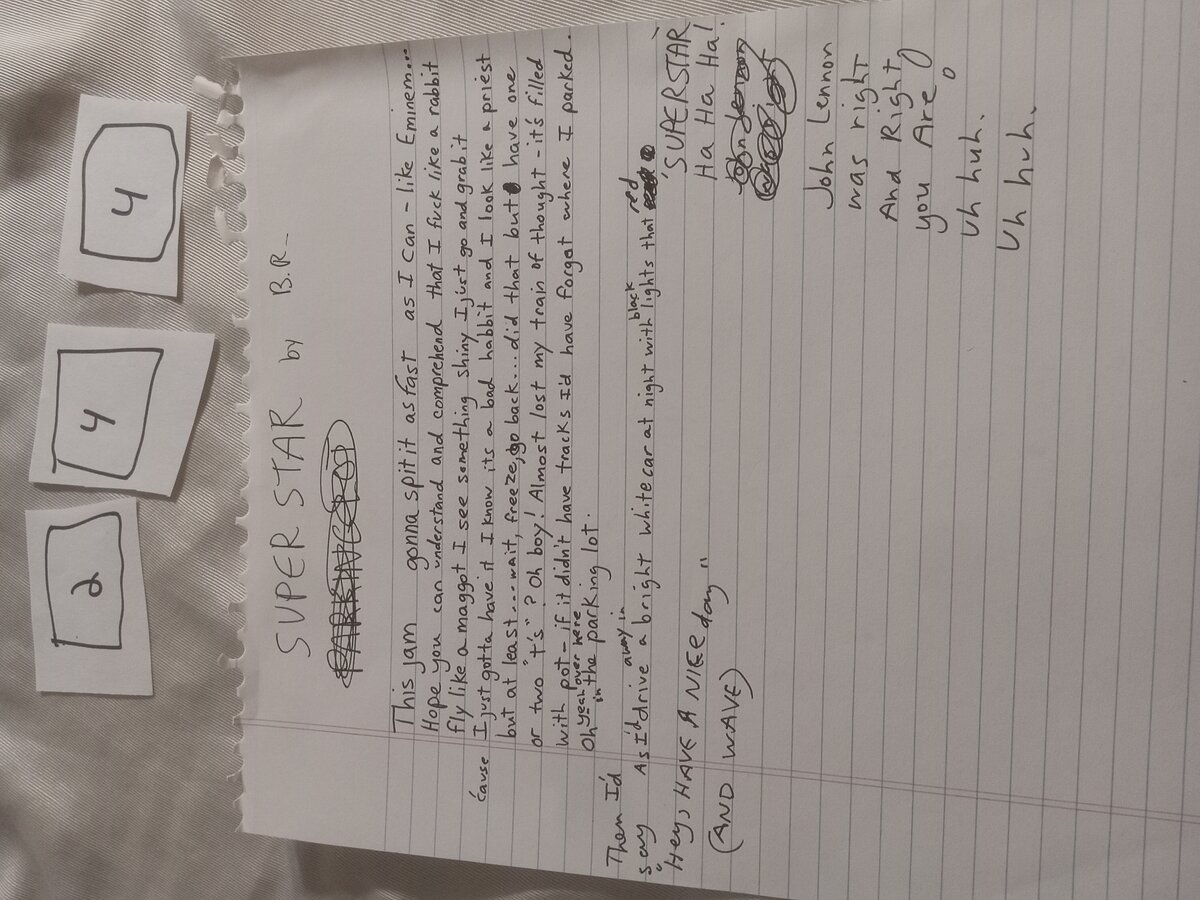 2 4 4
SUPER STAR by B.R.
This jam gonna spit it as fast as I can - like Eminem...
Hope you can understand and comprehend that I fuck like a rabbit
fly like a maggot I see something shiny I just go and grab it
'cause I just gotta have it I know its a bad habbit and I look like a priest
but at least... wait, freeze, go back... did that but have one
or two "t's"? Oh boy! Almost lost my train of thought - it's filled
with pot - if it didn't have tracks I'd have forgot where I parked.
Oh yeah over here in the parking lot.
Then I'd say As I'd drive away in a bright white car at night with black lights that red
"Hey, HAVE A NICE day"
(AND WAVE)
'SUPERSTAR'
Ha Ha Ha!
John Lennon
was right
And Right
you Are
Uh huh.
Uh huh.